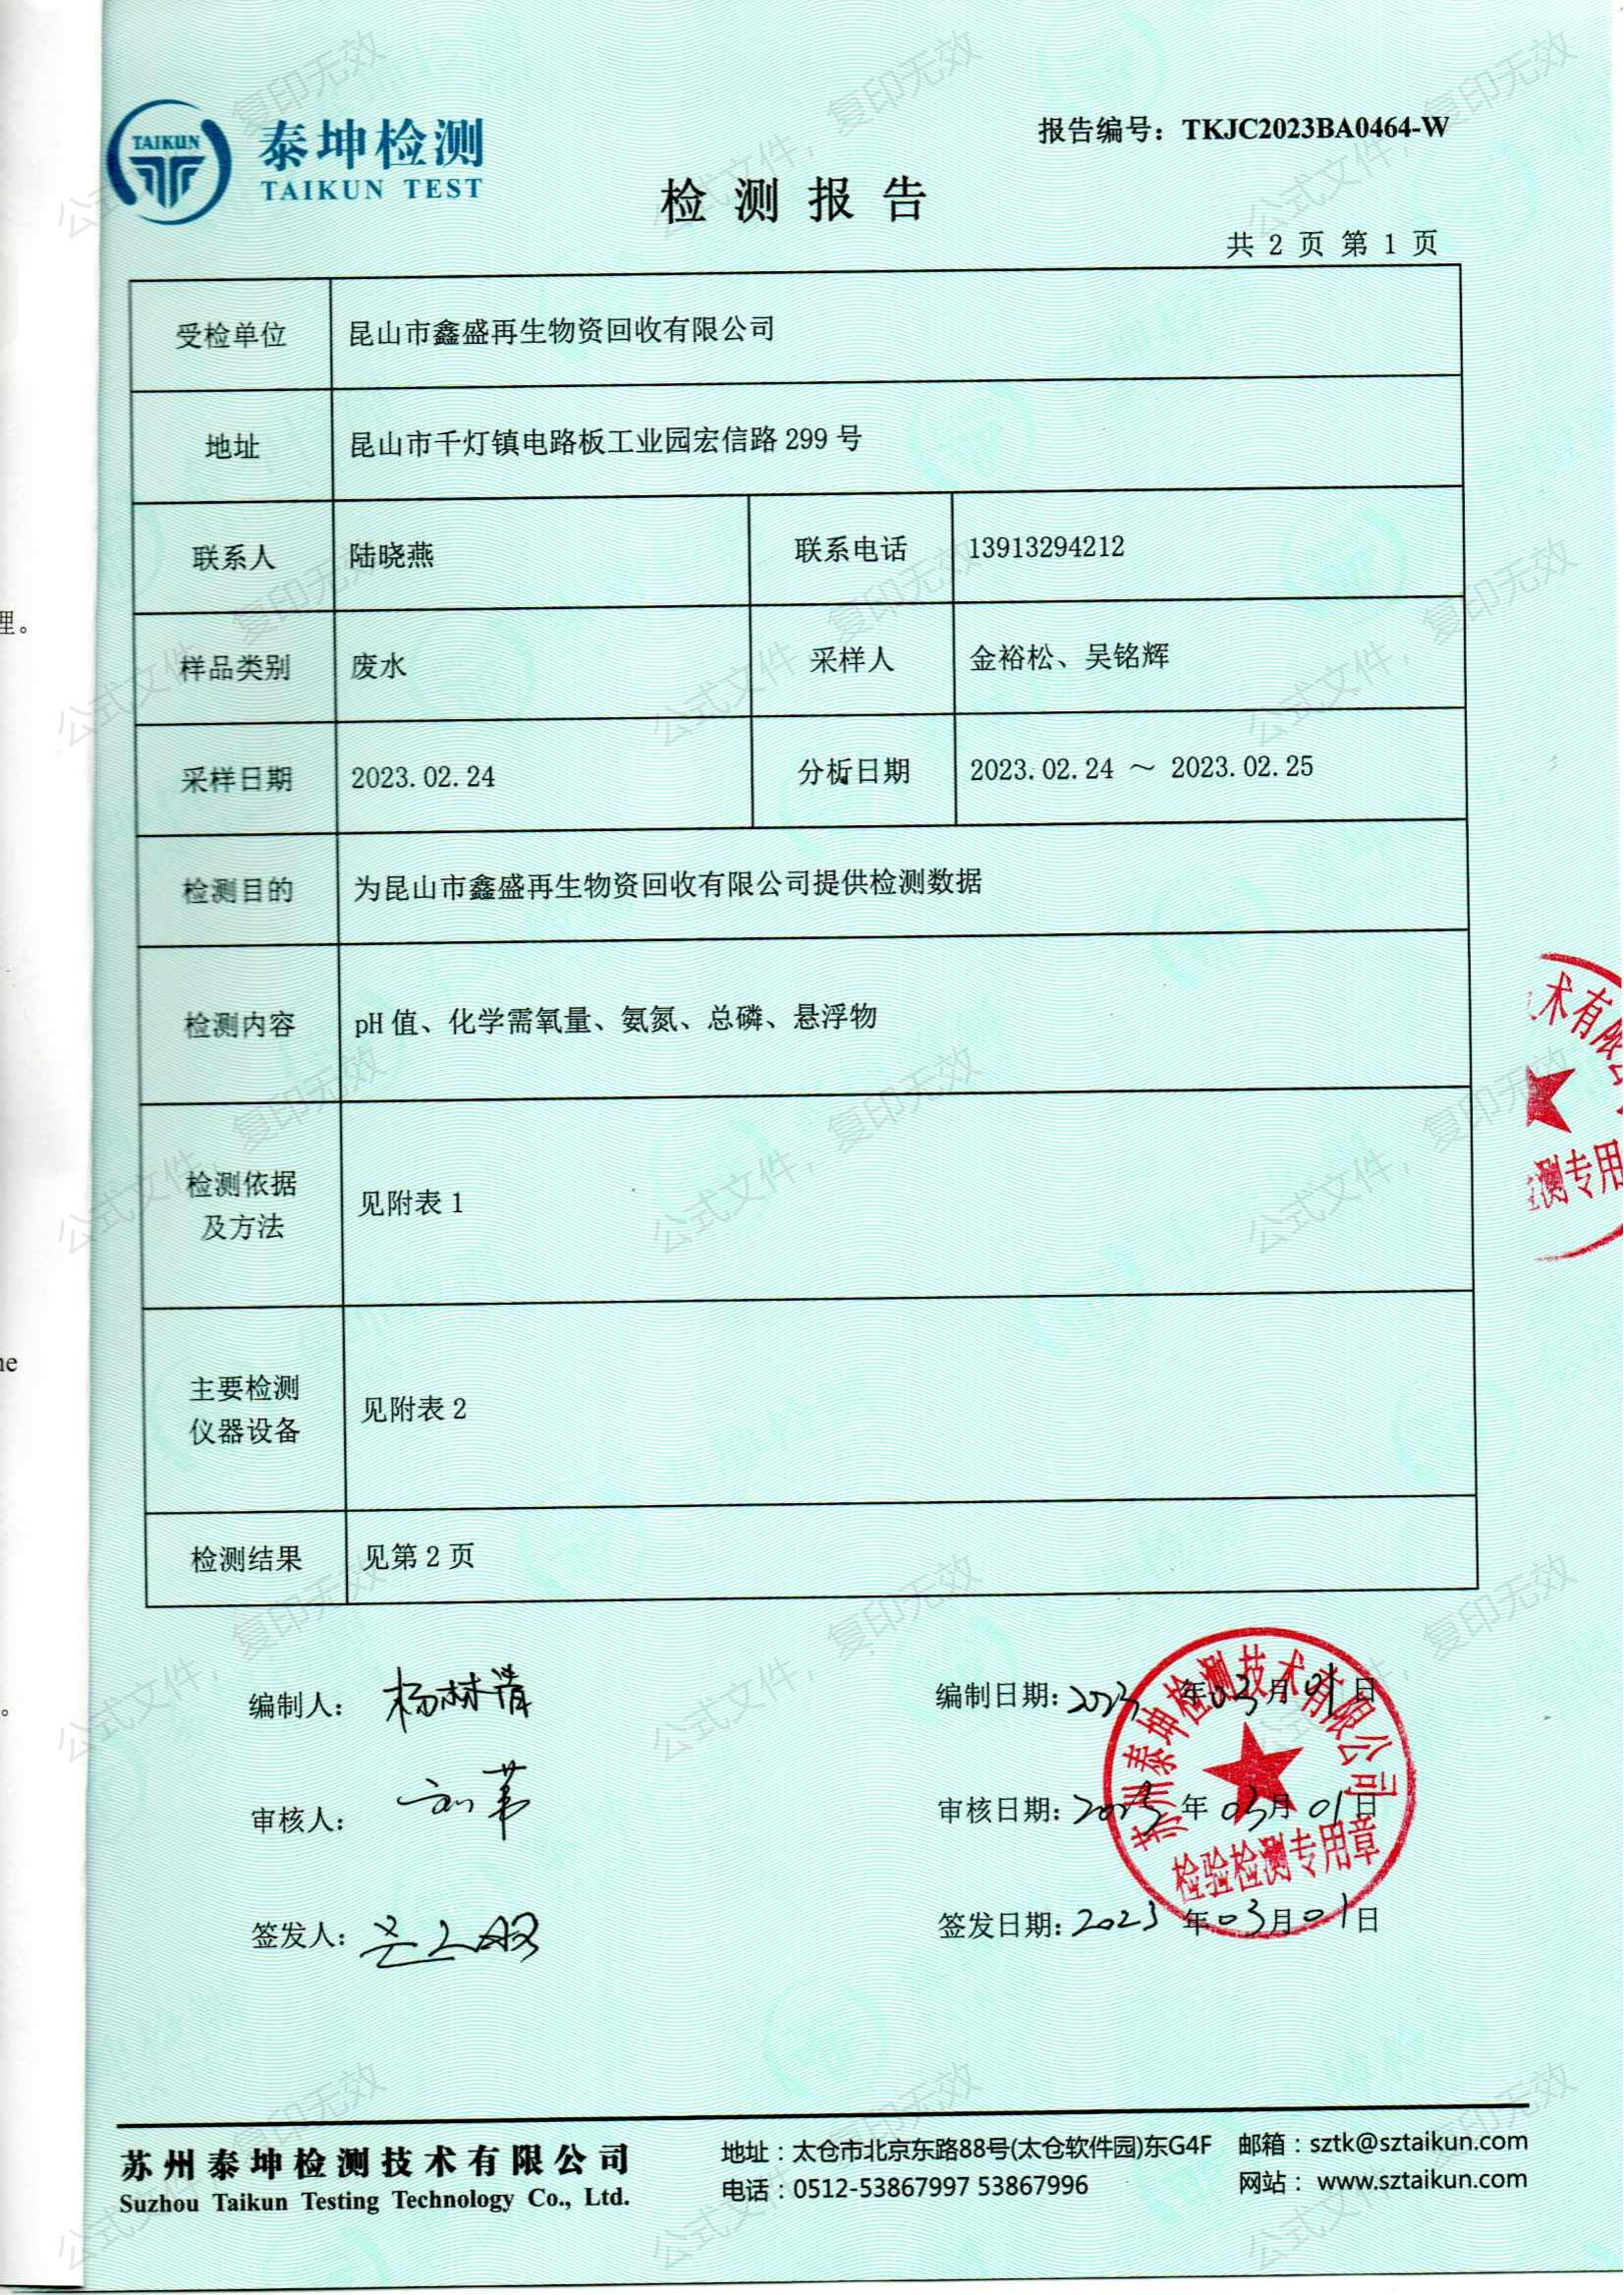 TAIKUN
泰坤检测
TAIKUN TEST
报告编号：TKJC2023BA0464-W
检测报告
共 2 页 第 1 页
受检单位 昆山市鑫盛再生物资回收有限公司
地址 昆山市千灯镇电路板工业园宏信路 299 号
联系人 陆晓燕 联系电话 13913294212
样品类别 废水 采样人 金裕松、吴铭辉
采样日期 2023.02.24 分析日期 2023.02.24 ～ 2023.02.25
检测目的 为昆山市鑫盛再生物资回收有限公司提供检测数据
检测内容 pH 值、化学需氧量、氨氮、总磷、悬浮物
检测依据
及方法
见附表 1
主要检测
仪器设备
见附表 2
检测结果 见第 2 页
编制人： 编制日期：2023 年 03 月 01 日
审核人： 审核日期：2023 年 03 月 01 日
签发人： 签发日期：2023 年 03 月 01 日
苏州泰坤检测技术有限公司
检验检测专用章
术有限
测专用
理。
公式文件，复印无效
苏州泰坤检测技术有限公司
Suzhou Taikun Testing Technology Co., Ltd.
地址：太仓市北京东路88号(太仓软件园)东G4F 邮箱：sztk@sztaikun.com
电话：0512-53867997 53867996 网站： www.sztaikun.com